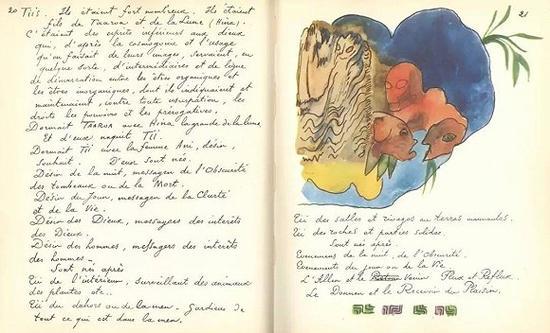 20 Tiis. Ils étaient fort nombreux. Ils étaient
fils de Taaroa et de la Lune (Hina).
C'étaient des esprits inférieurs aux dieux
qui, d'après la cosmogonie et l'usage
qu'on faisait de leurs images, servaient, en
quelque sorte, d'intermédiaires et de ligne
de démarcation entre les êtres organiques et
les êtres inorganiques, dont ils indiquaient et
maintenaient, contre toute usurpation, les
droits les pouvoirs et les prérogatives.
Dormait Taaroa avec Hina la grande de la lune
Et d'eux naquit Tii.
Dormait Tii avec la femme Ani, désir,
Souhait. D'eux sont nés.
Désir de la nuit, messager de l'Obscurité
des tombeaux ou de la Mort.
Désir du Jour, messager de la Clarté
et de la Vie.
Désir des Dieux, messagers des intérêts
des Dieux.
Désir des hommes, messagers des intérêts
des hommes.
Sont nés après
Tii de l'intérieur, surveillant des animaux
des plantes etc..
Tii du dehors ou de la mer. Gardien de
tout ce qui est dans la mer.
21
Tii des salles et rivages ou terres mouvantes.
Tii des roches et parties solides.
Sont nés après.
Evènements de la nuit, de l'Obscurité.
Evènements du jour ou de la Vie.
L'Aller et le Venir Flux et Reflux.
Le Donner et le Recevoir du Plaisir.